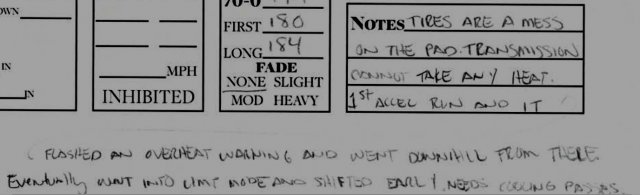 OWN
70-0
FIRST 180
NOTES TIRES ARE A MESS
LONG 184
ON THE PAD. TRANSMISSION
FADE
IN
MPH
NONE SLIGHT
CANNOT TAKE ANY HEAT.
IN
INHIBITED
MOD HEAVY
1ST ACCEL RUN AND IT
FLASHED AN OVERHEAT WARNING AND WENT DOWNHILL FROM THERE.
Eventually WENT INTO LIMP MODE AND SHIFTED EARLY. NEEDS COOLING